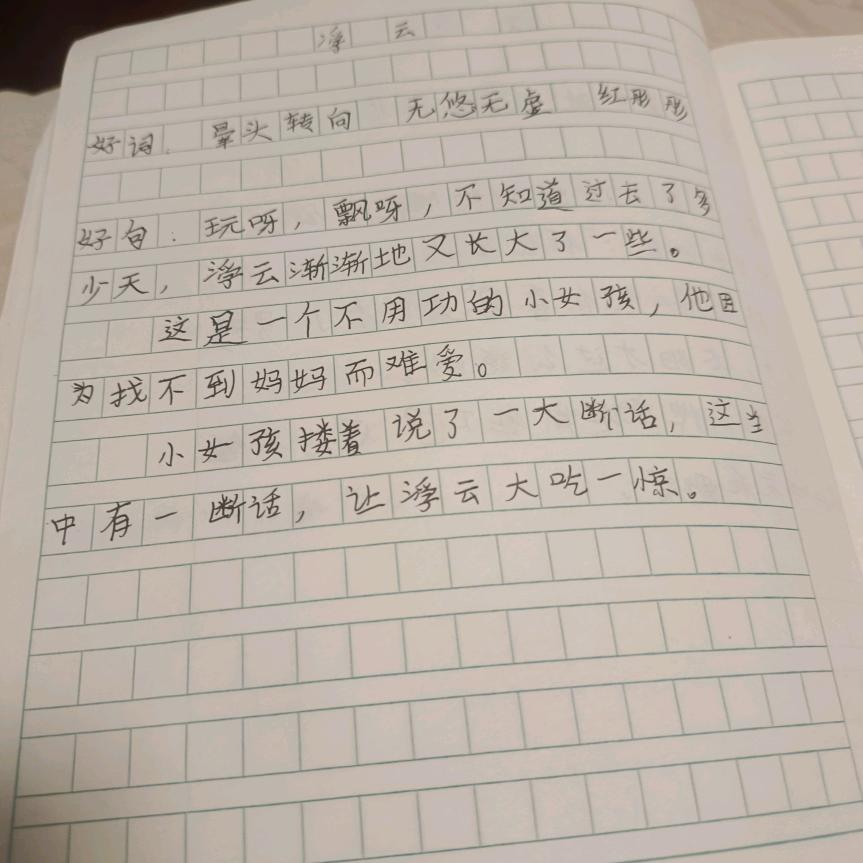 浮云
好词:晕头转向 无悠无虚 红彤彤
好句:玩呀,飘呀,不知道过去了多
少天,浮云渐渐地又长大了一些。
这是一个不用功的小女孩,他因
为找不到妈妈而难爱。
小女孩搂着说了一大断话,这当
中有一断话,让浮云大吃一惊。